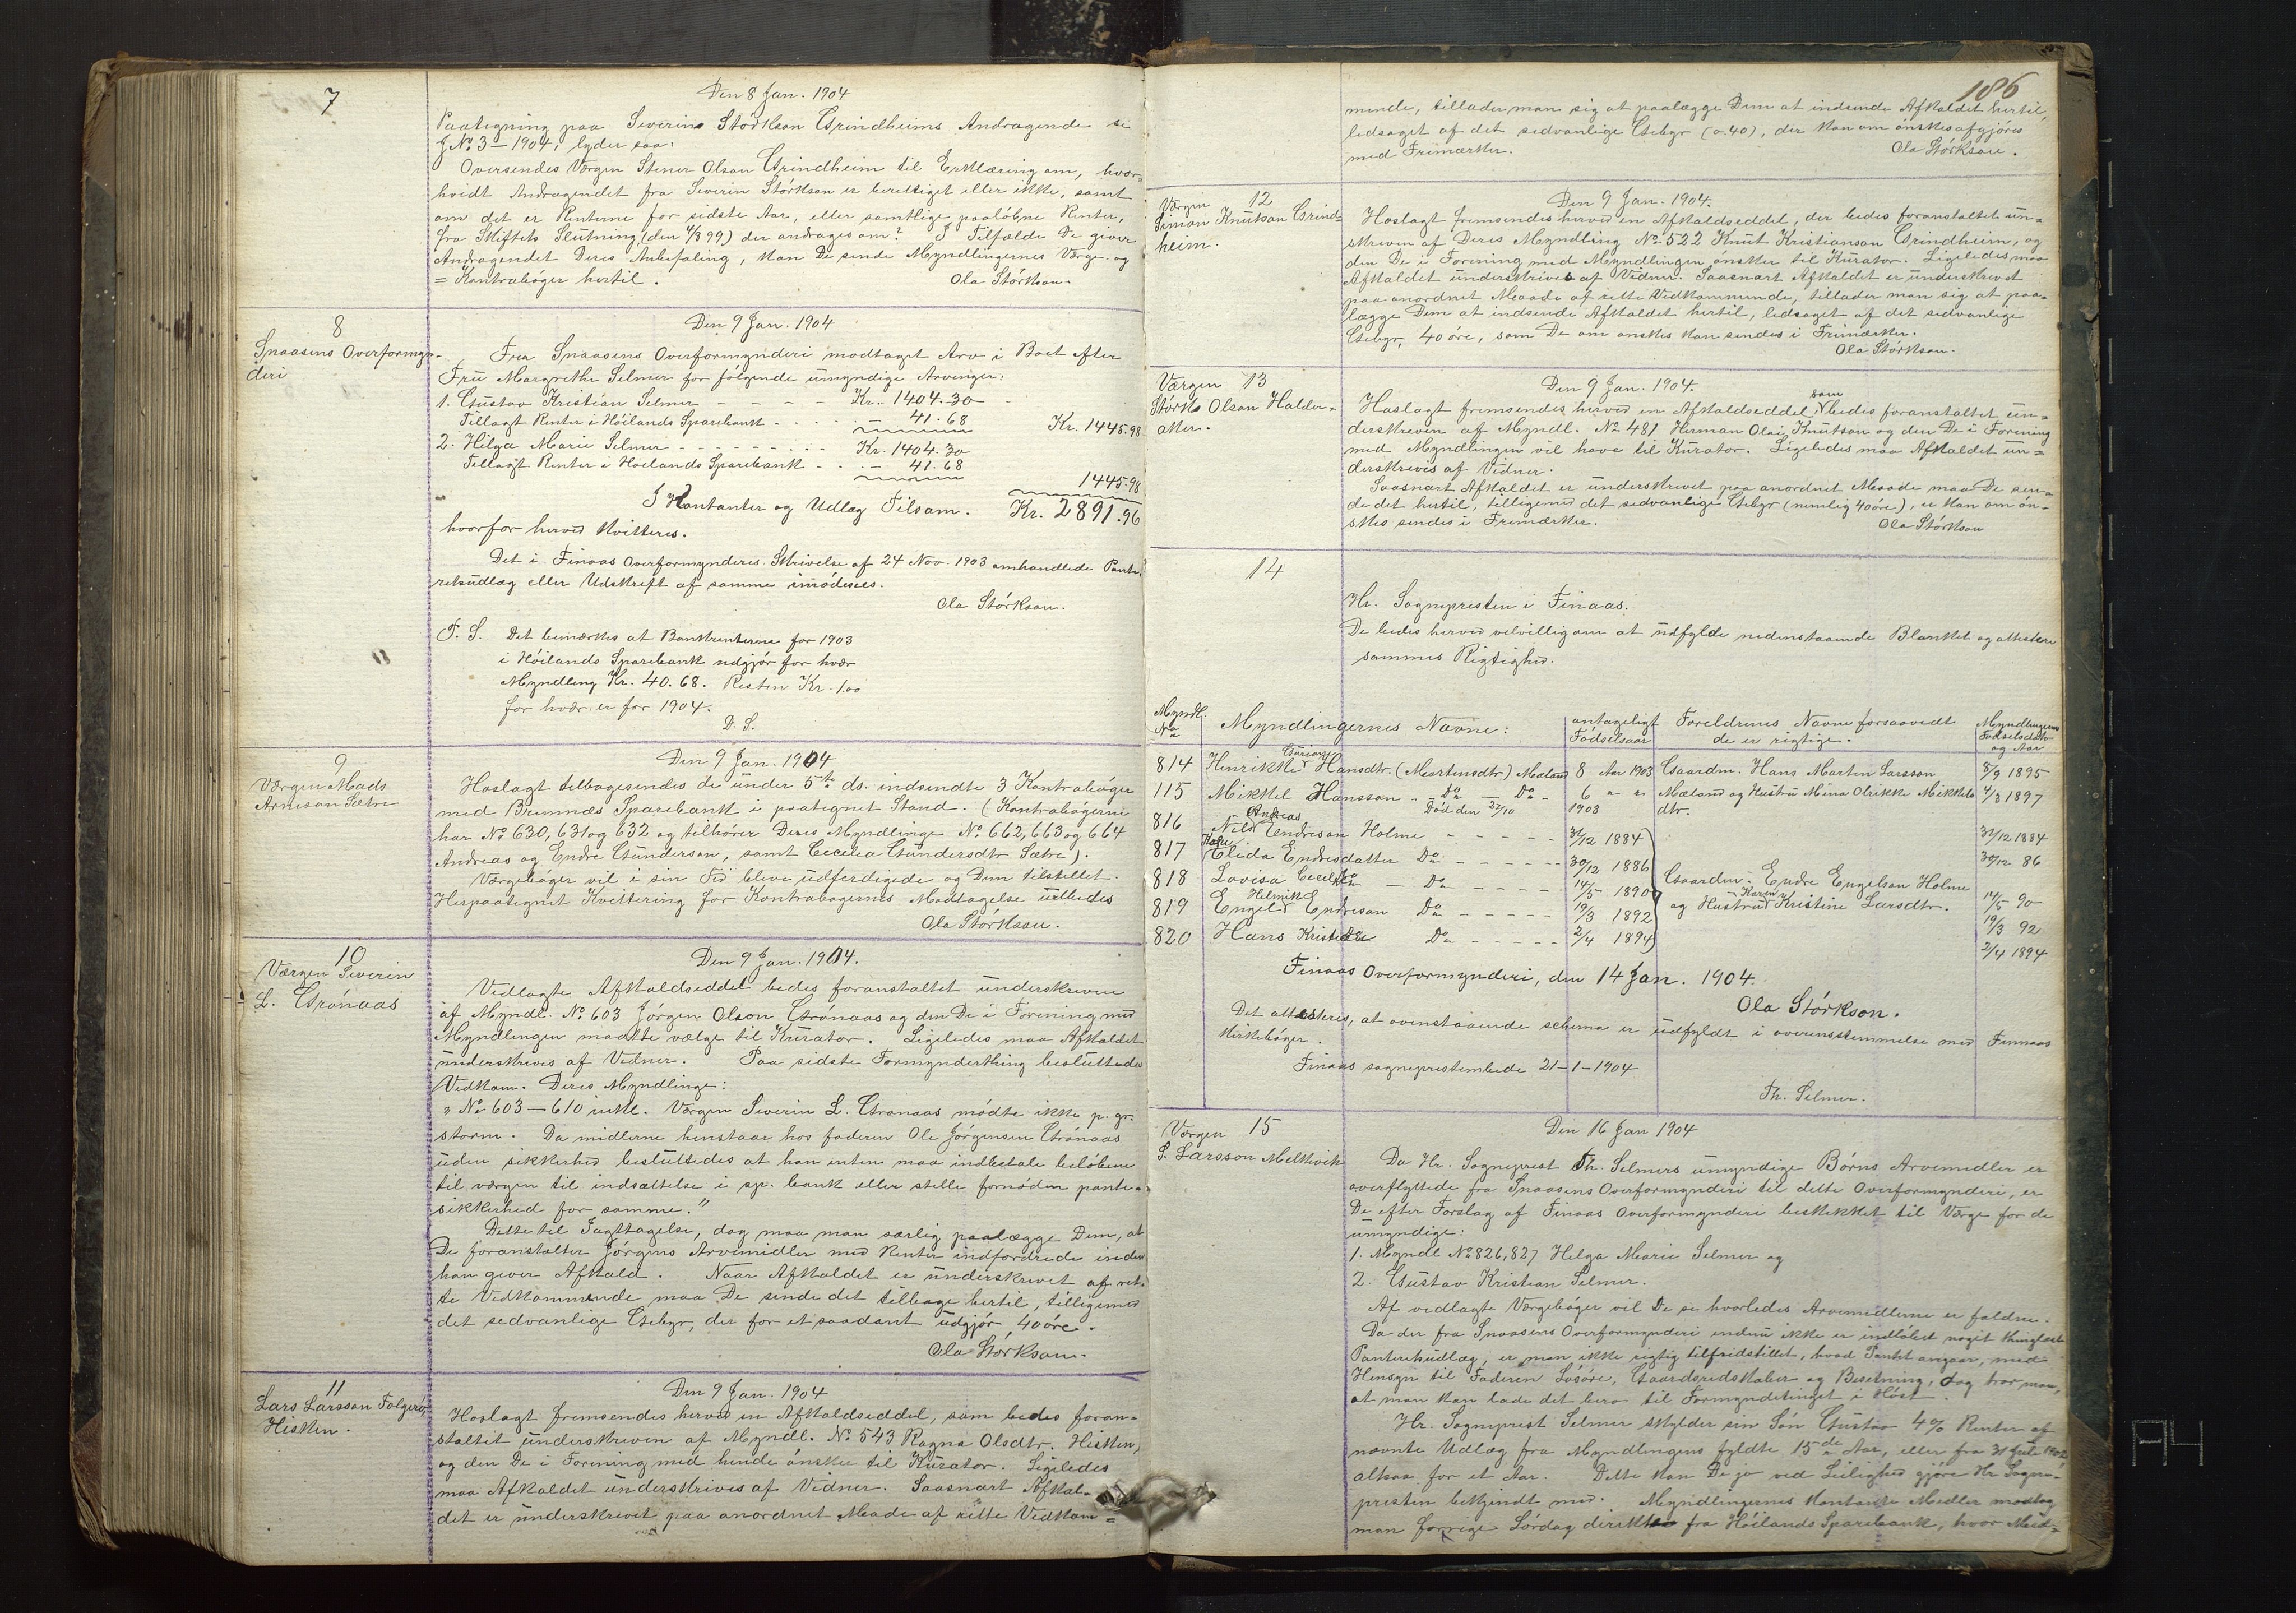 7
Den 8 Jan. 1904
Paategning paa Severin Størkson Grindheims Andragende se
J No 3 – 1904, lyder saa:
Oversendes Værgen Stener Olson Grindheim til Erklæring om, hvor-
hvidt Andragendet fra Severin Størkson er berettiget eller ikke, samt
om det er Renterne for sidste Aar, eller samtlige paaløbne Renter,
fra Skiftets Slutning, (den 4/8 99) der andrages om? I Tilfælde De giver
Andragendet Deres Anbefaling, kan De sende Myndlingernes Værge- og
= Kontrabøger hertil.
Ola Størkson.
8
Snaasens Overformyn-
deri
Den 9 Jan. 1904
Fra Snaasens Overformynderi modtaget Arv i Boet efter
Fru Margrethe Selmer for følgende umyndige Arvinger:
1. Gustav Kristian Selmer - - - - Kr. 1404.30
Tillagt Renter i Høilands Sparebank - - - - 41.68
Kr. 1445.98
2. Helga Marie Selmer - - - - - - - Kr. 1404.30
Tillagt Renter i Høilands Sparebank - - - - 41.68
1445.98
I Kontanter og Udlæg Tilsam. Kr. 2891.96
hvorfor herved kvitteres.
Det i Finaas Overformynderis Skrivelse af 24 Nov. 1903 omhandlede Pante-
retsudlæg eller Udskrift af samme imødesees.
Ola Størkson.
F. S. Det bemærkes at Bankrenterne for 1903
i Høilands Sparebank udgjør for hver
Myndling Kr. 40.68. Resten Kr. 1.00
for hver er for 1904.
D. S.
9
Værgen Mads
Arneson Sætre
Den 9 Jan. 1904
Hoslagt tilbagesendes de under 5te ds. indsendte 3 Kontrabøger
med Bremnæs Sparebank i paategnet Stand. (Kontrabøgerne
har No 630, 631 og 632 og tilhører Deres Myndlinge No 662, 663 og 664
Andreas og Endre Gunderson, samt Cecelia Gundersdtr Sætre).
Værgebøger vil i sin Tid blive udferdigede og Dem tilstillet.
Herpaategnet Kvittering for Kontrabøgernes Modtagelse udbedes
Ola Størkson.
10
Værgen Severin
L. Grønaas
Den 9 Jan. 1904.
Vedlagte Afkaldseddel bedes foranstaltet underskreven
af Myndl. No 603 Jørgen Olson Grønaas og den De i Forening med
Myndlingen maatte vælge til Kurator. Ligeledes maa Afkaldet
underskrives af Vidner. Paa sidste Formynderthing besluttedes
Vedkom. Deres Myndlinge:
" No 603 – 610 inkl. Værgen Severin L. Grønaas mødte ikke p. gr.
storm. Da midlerne henstaar hos faderen Ole Jørgensen Grønaas
uden sikkerhed besluttedes at han enten maa indbetale beløbene
til værgen til indsættelse i sp. bank eller stille fornøden pante-
sikkerhed for samme."
Dette til Iagttagelse, dog maa man særlig paalægge Dem, at
De foranstalter Jørgens Arvemidler med Renter indfordrede inden
han giver Afkald. Naar Afkaldet er underskrevet af ret-
te Vedkommende maa De sende det tilbage hertil, tilligemed
det sedvanlige Gebyr, der for et saadant udgjør 40 øre.
Ola Størkson.
11
Lars Larsson Folgerø,
Hisken.
Den 9 Jan. 1904
Hoslagt fremsendes herved en Afkaldseddel, som bedes foran-
staltet underskreven af Myndl. No 543 Ragna Olsdtr. Hisken,
og den De i Forening med hende ønsker til Kurator. Ligeledes
maa Afkaldet underskrives af Vidner. Saasnart Afkal-
det er underskrevet paa anordnet Maade af rette Vedkom=
186
mende, tillader man sig at paalægge Dem at indsende Afkaldet hertil,
ledsaget af det sedvanlige Gebyr (0.40), der kan om ønskes afgjøres
med Frimærker.
Ola Størkson.
12
Værgen
Simon Knutson Grind-
heim.
Den 9 Jan. 1904.
Hoslagt fremsendes herved en Afkaldseddel, der bedes foranstaltet un=
skreven af Deres Myndling No 522 Knut Kristianson Grindheim, og
den De i Forening med Myndlingen ønsker til Kurator. Ligeledes maa
Afkaldet underskrives af Vidner. Saasnart Afkaldet er underskrevet
paa anordnet Maade af rette Vedkommende, tillader man sig at paa-
lægge Dem at indsende Afkaldet hertil, ledsaget af det sedvanlige
Gebyr, 40 øre, som De om ønskes kan sendes i Frimærker.
Ola Størkson.
13
Værgen
Størk Olson Halder-
aker.
Den 9 Jan. 1904.
Hoslagt fremsendes herved en Afkaldseddel som bedes foranstaltet un=
derskreven af Myndl. No 481 Herman Olai Knutson og den De i Forening
med Myndlingen vil have til Kurator. Ligeledes maa Afkaldet un=
derskrives af Vidner.
Saasnart Afkaldet er underskrevet paa anordnet Maade maa De sen-
de det hertil, tilligemed det sedvanlige Gebyr (nemlig 40 øre), er kan om øn-
skes sendes i Frimærker.
Ola Størkson
14
Hr. Sognepresten i Finaas.
De bedes herved velvilligen om at udfylde nedenstaaende Blanket og attestere
sammes Rigtighed.
Myndl. No Myndlingernes Navne: antageligt Fødselsaar Foreldrenes Navne forsaavidt de er rigtige. Myndlingernes Fødselsdato og Aar
814 Henrikke Hansdtr. (Martensdtr) Mæland 8 Aar 1903 Gaardm. Hans Marten Larsson 8/9 1895
115 Mikkel Hansson - Do - Do - 6 " " Mæland og Hustru Mina Olrikke Mikkels 4/3 1897
Død den 27/10 1903 dtr.
816 Nils Andreas Endreson Holme - - - - - 31/12 1884 31/12 1884
817 Elida Endresdatter Do - - - - - 30/12 1886 30/12 86
818 Lovisa Cecelie Do - Do - - - - 14/5 1890 Gaardm. Endre Engelson Holme 14/5 90
819 Engel Helmik Endreson Do - - - - - 19/3 1892 og Hustru Karen Kristine Larsdtr. 19/3 92
820 Hans Kristian Do - - - - - 2/4 1894 2/4 1894
Finaas Overformynderi, den 14 Jan. 1904.
Ola Størkson.
Det attesteres, at ovenstaaende schema er udfyldt i overensstemmelse med Finnaas
Kirkebøger.
Finaas sogneprestembede 21-1-1904
Th. Selmer.
15
Værgen
S. Larsson Melkevik
Den 16 Jan 1904
Da Hr. Sogneprest Th. Selmers umyndige Børns Arvemidler er
overflyttede fra Snaasens Overformynderi til dette Overformynderi, er
De efter Forslag af Finaas Overformynderi beskikket til Værge for de
umyndige:
1. Myndl No 826, 827 Helga Marie Selmer og
2. Gustav Kristian Selmer.
Af vedlagte Værgebøger vil De se hvorledes Arvemidlerne er faldne.
Da der fra Snaasens Overformynderi endnu ikke er indløbet noget thinglæst
Panteretsudlæg, er man ikke rigtig tilfridstillet, hvad Pantet angaar, med
Hensyn til Faderen Løsøre, Gaardsredskaber og Besetning, dog tror man,
at man kan lade det bero til Formyndertinget i Høst.
Hr. Sogneprest Selmer skylder sin Søn Gustav 4% Renter af
nævnte Udlæg fra Myndlingens fyldte 15de Aar, eller fra 31 Juli 1902,
altsaa for et Aar. Dette kan De jo ved Leilighed gjøre Hr Sogne-
presten bekjendt med. Myndlingernes Kontante Midler modtog
man forrige Lørdag direkte fra Høilands Sparebank, hvor Mid=